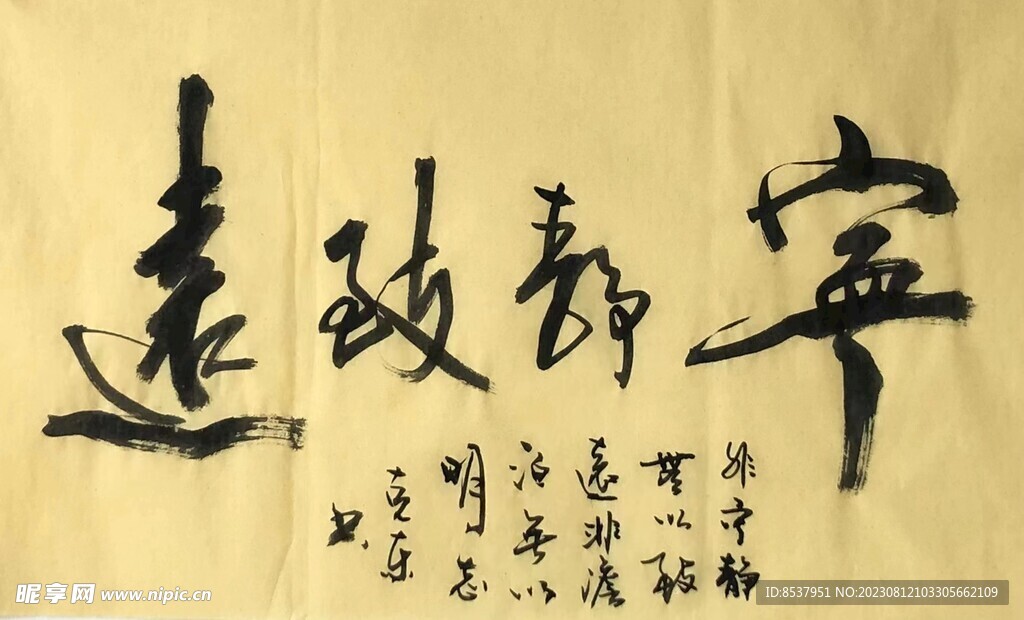 寧靜致遠
非宁静
無以致
遠非澹
泊無以
明志
克东
书
昵享网 www.nipic.cn
ID:8537951 NO:20230812103305662109